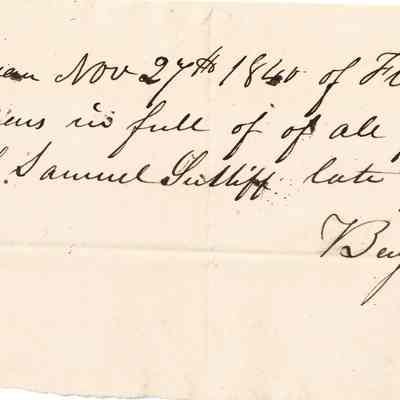 Nov 27th 1840 of F
in full of of all
Samuel Sutliff late
Ben